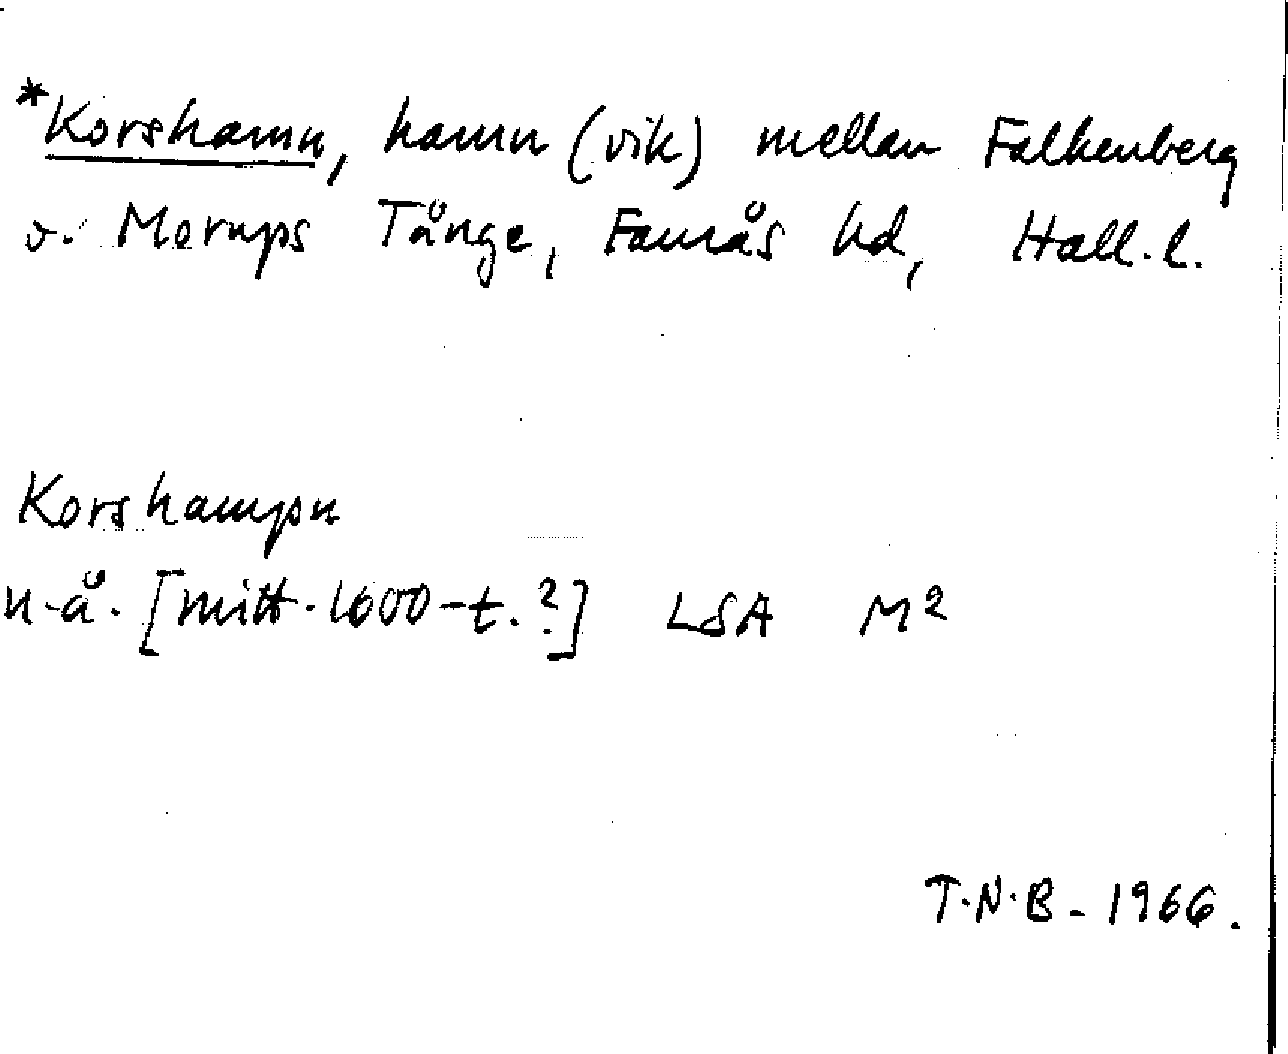 *Korshamn, hamn (vik) mellan Falkenberg
o. Morups Tånge, Faurås hd, Hall.l.
Korshampn
n.å. [mitt. 1600-t.?] LSA M2
T.N.B - 1966.